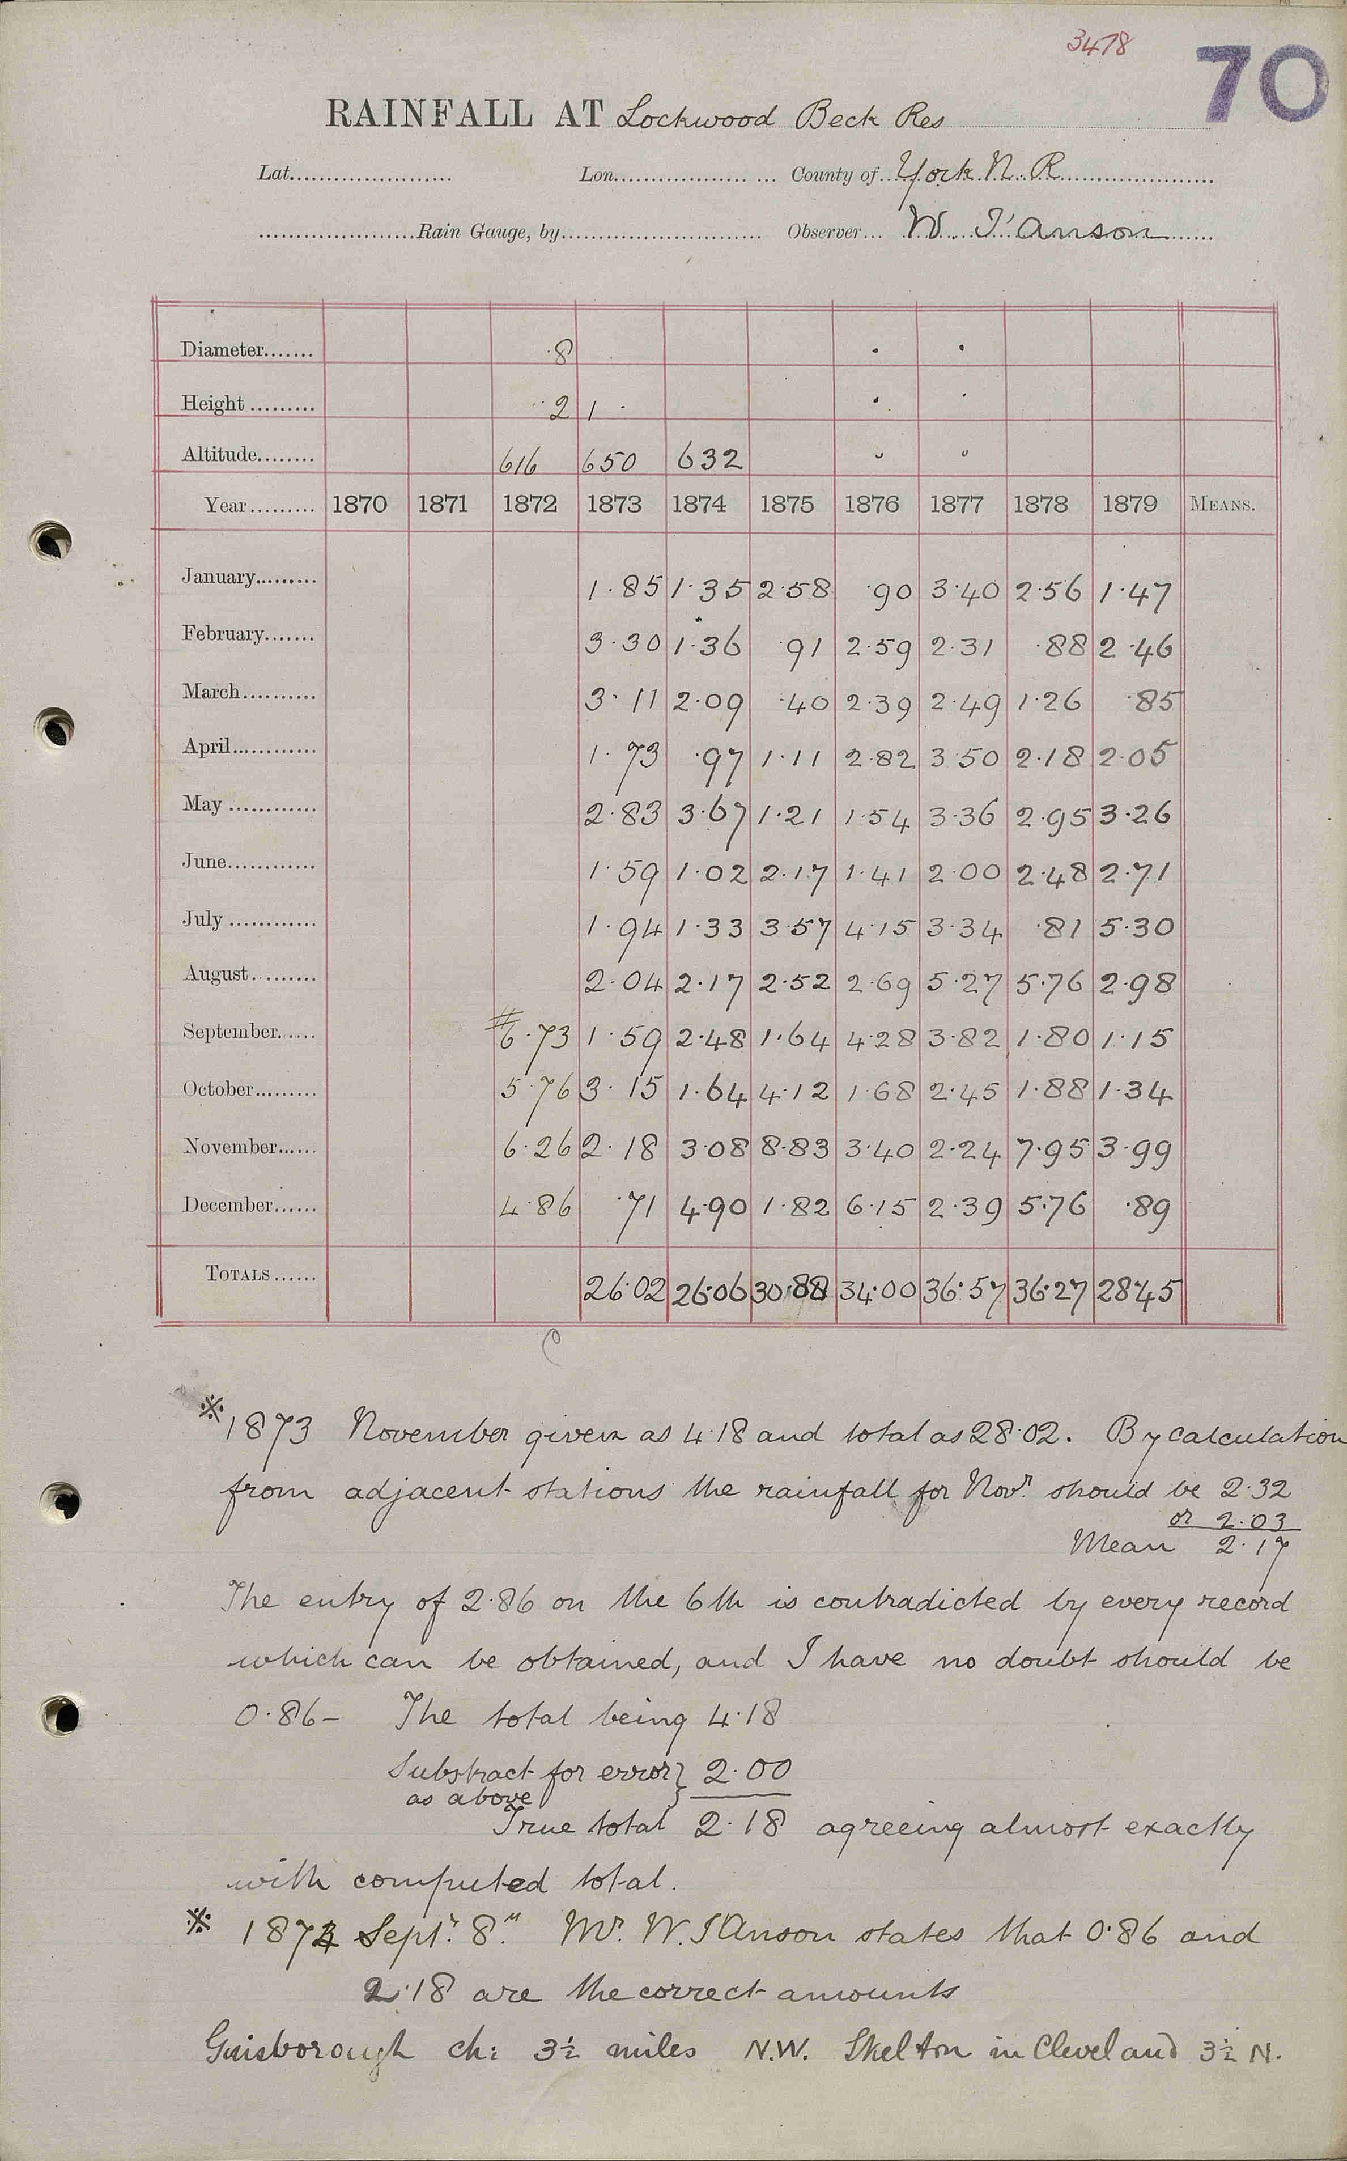 3478
70
RAINFALL AT Lockwood Beck Res
Lat...................... Lon.................. ... County of...York N. R.....................
.....................Rain Gauge, by........................... Observer... W. I'Anson......
Diameter....... ·8
Height ......... ·2 1
Altitude........ 616 650 632
Year......... 1870 1871 1872 1873 1874 1875 1876 1877 1878 1879 MEANS.
January......... 1·85 1·35 2·58 ·90 3·40 2·56 1·47
February....... 3·30 1·36 91 2·59 2·31 ·88 2·46
March.......... 3·11 2·09 ·40 2·39 2·49 1·26 ·85
April............ 1·73 ·97 1·11 2·82 3·50 2·18 2·05
May ............ 2·83 3·67 1·21 1·54 3·36 2·95 3·26
June............ 1·59 1·02 2·17 1·41 2·00 2·48 2·71
July ............ 1·94 1·33 3·57 4·15 3·34 ·81 5·30
August......... 2·04 2·17 2·52 2·69 5·27 5·76 2·98
September...... # 6·73 1·59 2·48 1·64 4·28 3·82 1·80 1·15
October......... 5·76 3·15 1·64 4·12 1·68 2·45 1·88 1·34
November...... 6·26 2·18 3·08 8·83 3·40 2·24 7·95 3·99
December...... 4·86 ·71 4·90 1·82 6·15 2·39 5·76 ·89
TOTALS...... 26·02 26·06 30·88 34·00 36·57 36·27 28·45
※ 1873 November given as 4·18 and total as 28·02. By calculation
from adjacent stations the rainfall for Novr. should be 2·32
or 2·03
Mean 2·17
The entry of 2·86 on the 6th is contradicted by every record
which can be obtained, and I have no doubt should be
0·86– The total being 4·18
Substract for error } 2·00
as above
True total 2·18 agreeing almost exactly
with computed total.
※ 1874 Septr. 8" Mr. W. I'Anson states that 0·86 and
2·18 are the correct amounts
Guisborough ch: 3½ miles N.W. Skelton in Cleveland 3½ N.